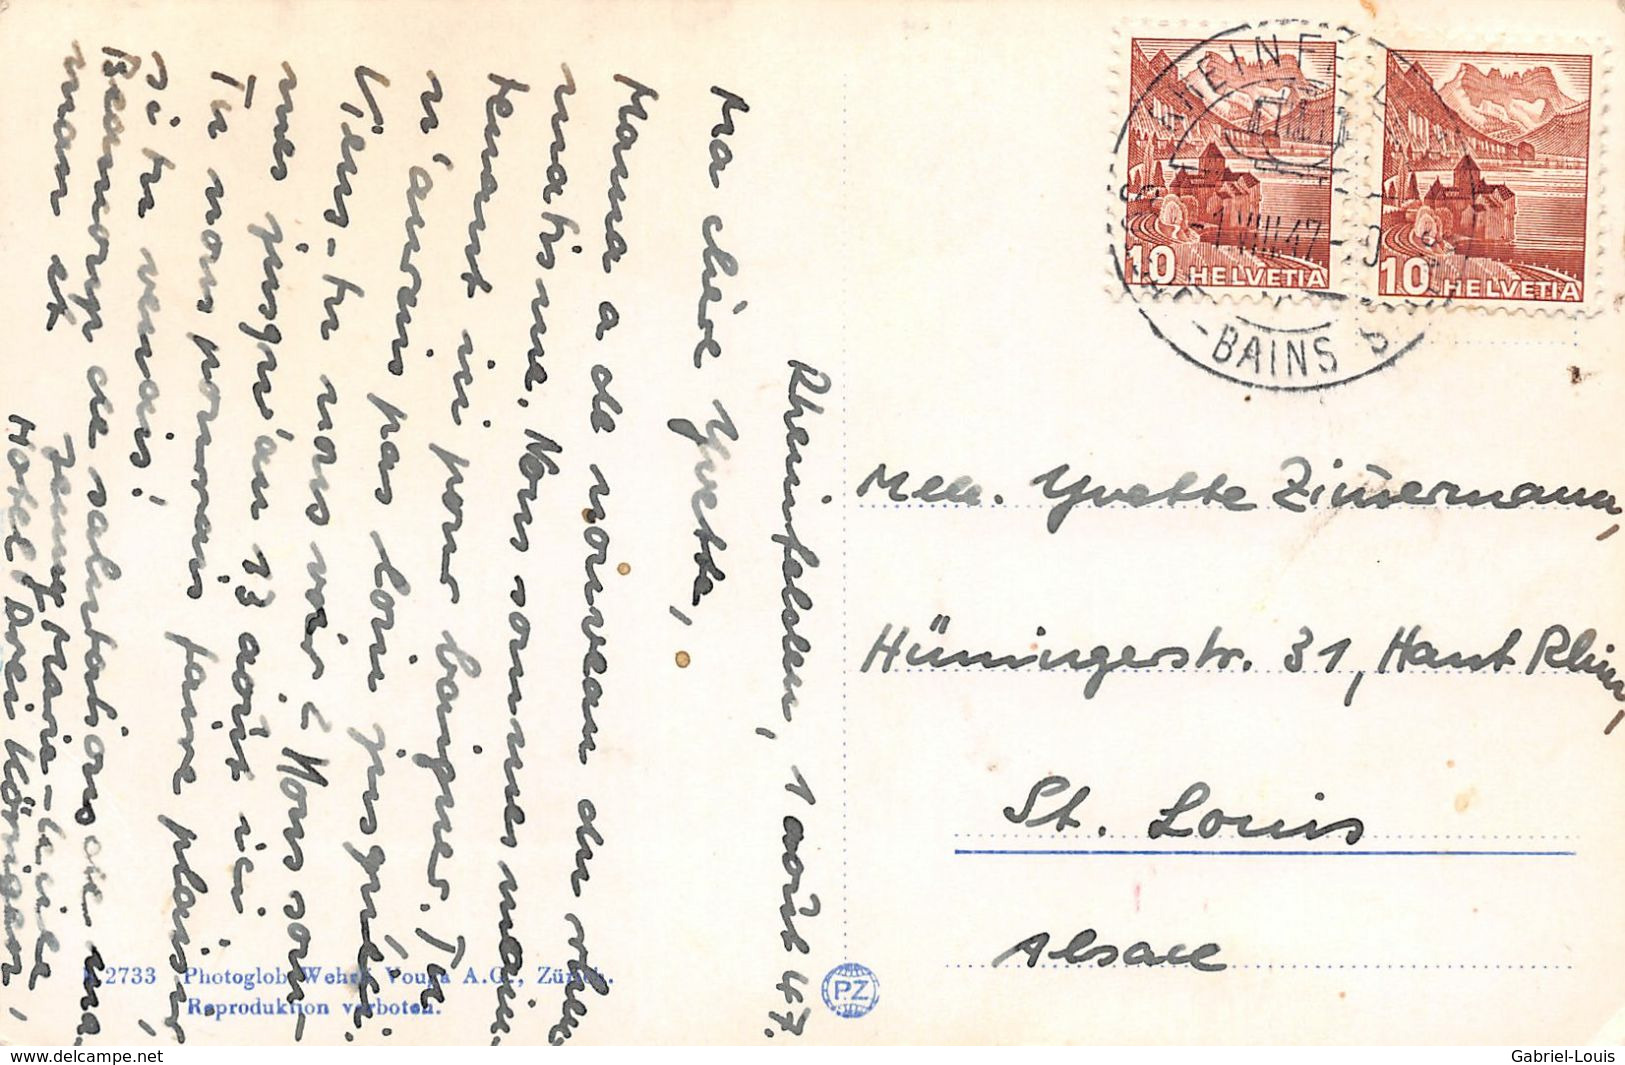 Rheinfelden, 1 août 47.
Ma chère Yvette,
Mama a de nouveau du rhu-
matisme. Nous sommes main-
tenant ici pour baigner. Tu
n'aurais pas loin jusqu'ici.
Viens-tu nous voir? Nous som-
mes jusqu'au 13 août ici
Tu nous pourrais faire plaisir,
si tu venais!
Beaucoup de salutations de ma
man et
Jenny Marie-
Hotel Drei Königen,
2733 Photoglob-Wehrli Vouga A.G., Zürich.
Reproduktion verboten.
PZ
10 HELVETIA
10 HELVETIA
RHEINFELDEN
-1.VIII.47
-BAINS S
Melle. Yvette Zimmermann,
Hüningerstr. 31, Haut Rhin,
St. Louis
Alsace
Gabriel-Louis
www.delcampe.net